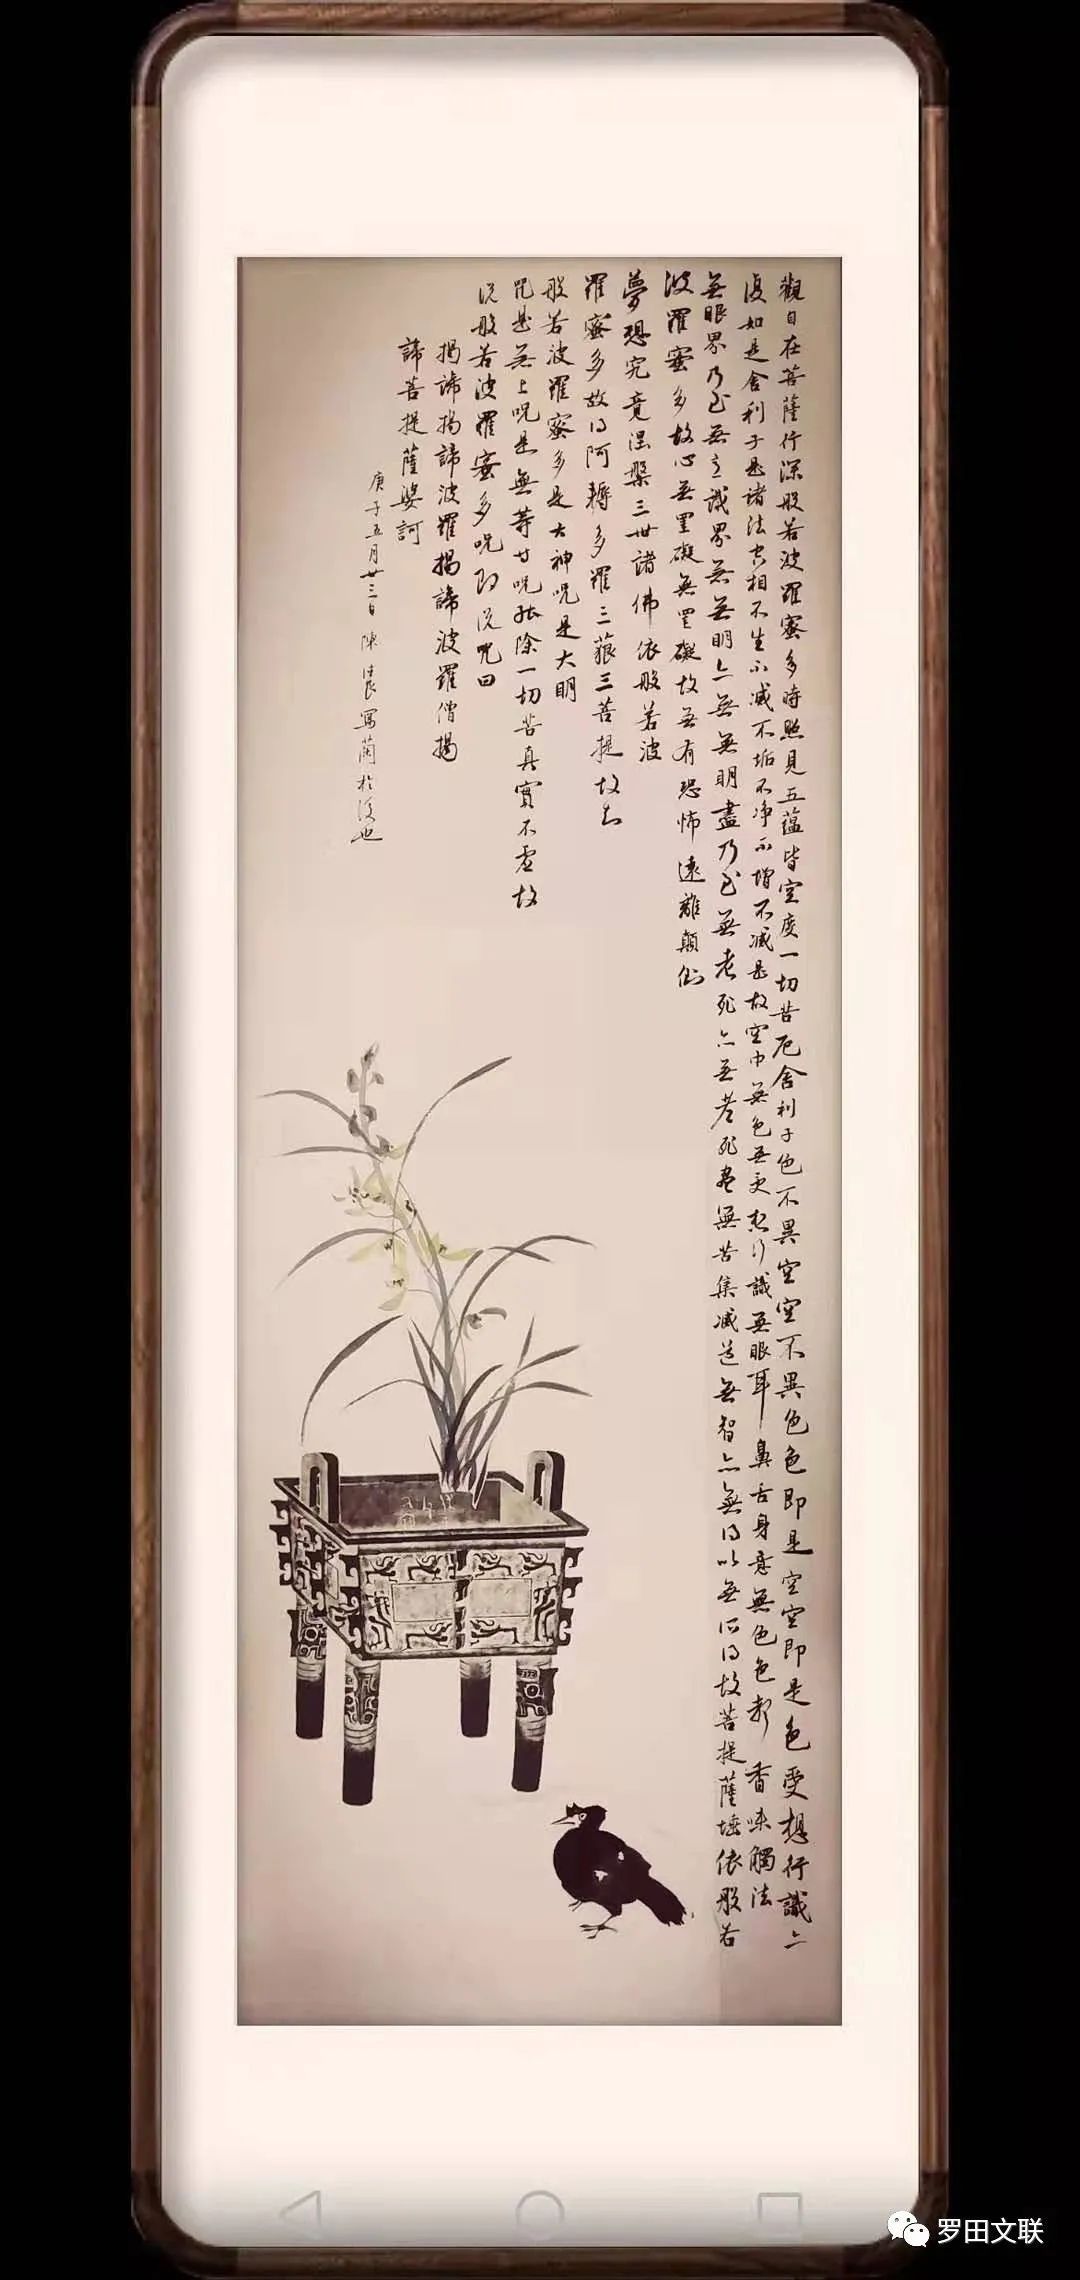 觀自在菩薩行深般若波羅蜜多時照見五蘊皆空度一切苦厄舍利子色不異空空不異色色即是空空即是色受想行識亦
復如是舍利子是諸法空相不生不滅不垢不净不增不减是故空中無色無受想行識無眼耳鼻舌身意無色色聲香味觸法
無眼界乃至無意識界無無明亦無無明盡乃至無老死亦無老死盡無苦集滅道無智亦無得以無所得故菩提薩埵依般若
波羅蜜多故心無罣礙無罣礙故無有恐怖遠離顛倒
夢想究竟涅槃三世諸佛依般若波
羅蜜多故得阿耨多羅三藐三菩提故知
般若波羅蜜多是大神咒是大明
咒是無上咒是無等等咒能除一切苦真實不虛故
说般若波羅蜜多咒即说咒曰
揭諦揭諦波羅揭諦波羅僧揭
諦菩提薩婆訶
庚子五月廿三日陳寫蘭於後也
罗田文联